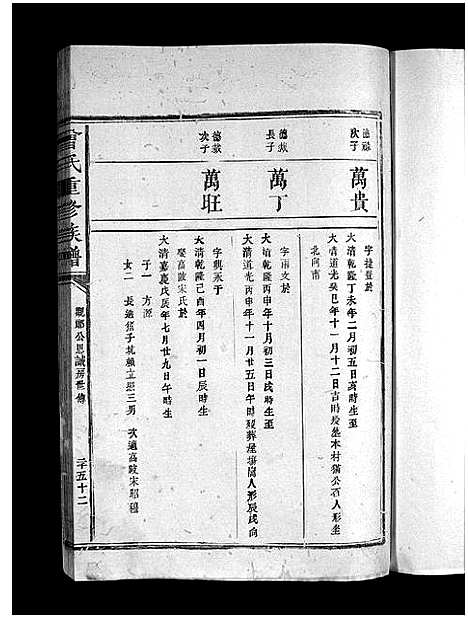 德祿次子
萬貴
字捷登於
大清乾隆丁未年二月初五日亥時生至
大清道光癸巳年十一月十二日吉時歿塟本村貓公石人形坐
北向南
德菽長子
萬丁
字南支於
大清乾隆丙申年十月初三日戌時生至
大清道光丙申年十一月廿五日午時歿葬人形辰戌向
德菽次子
萬旺
字興禾于
大清乾隆己酉年四月初一日辰時生
娶高陂宋氏於
大清嘉慶戊辰年七月廿九日午時生
子一 方源
女二 長適子坑賴三男 次適高陂宋昭
曾氏重修族譜
觀鄉公恩誠房世傳
二千五十二